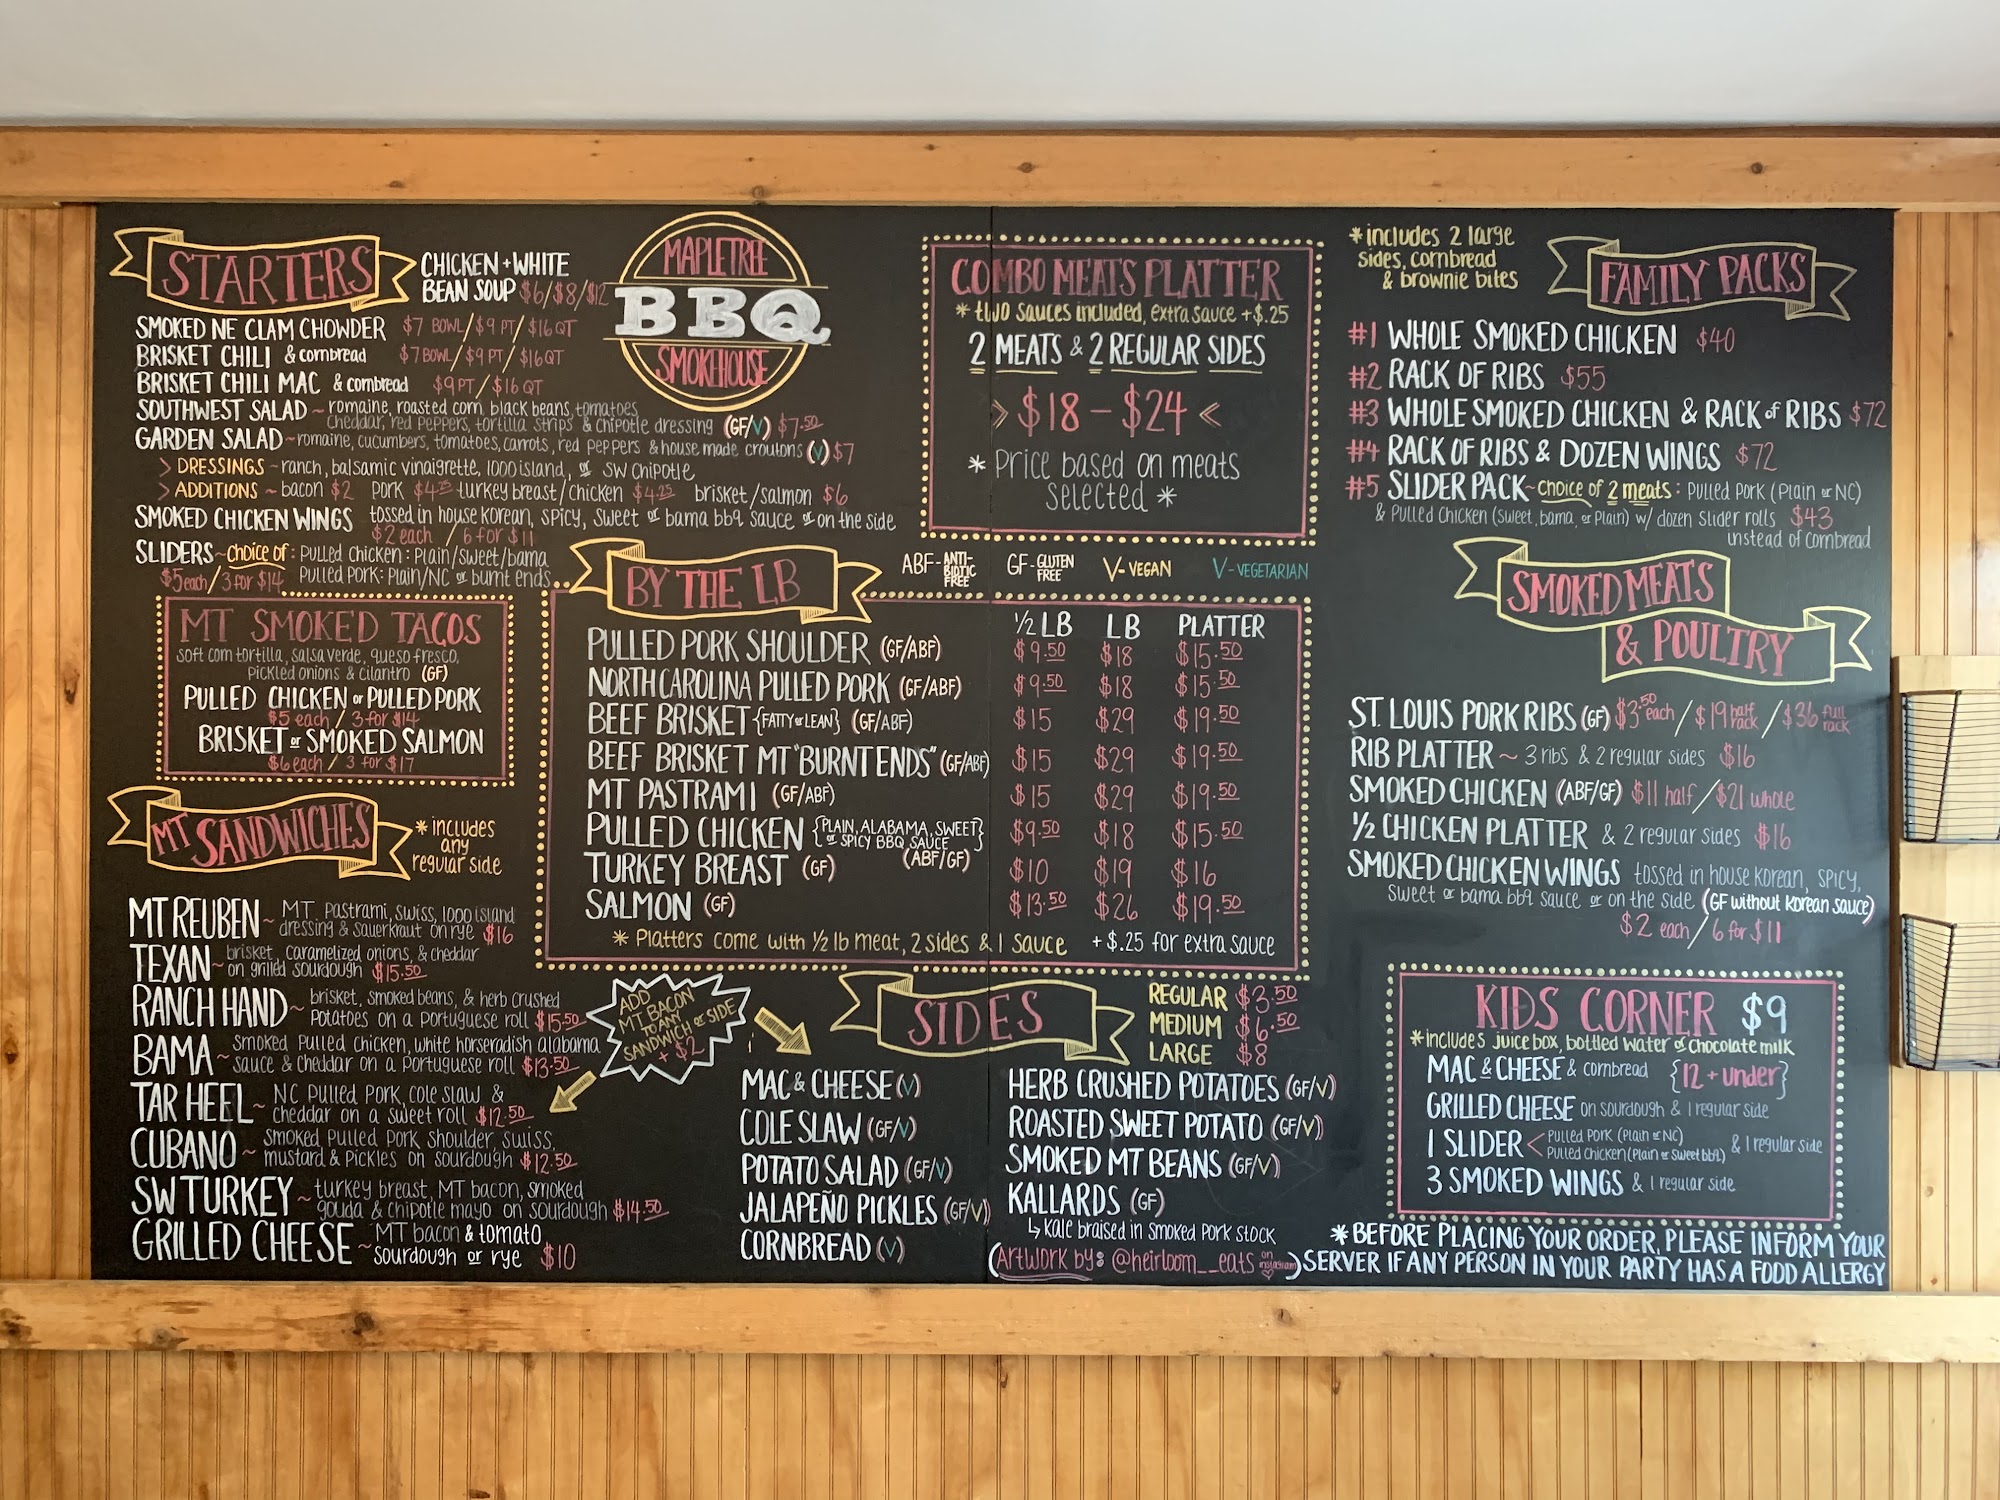 STARTERS
CHICKEN + WHITE
BEAN SOUP $6/$8/$12
SMOKED NE CLAM CHOWDER $7 BOWL/$9 PT/$16 QT
BRISKET CHILI & cornbread $7 BOWL/$9 PT/$16 QT
BRISKET CHILI MAC & cornbread $9 PT/$16 QT
SOUTHWEST SALAD ~ romaine, roasted corn, black beans, tomatoes
cheddar, red peppers, tortilla strips & chipotle dressing (GF/V) $7.50
GARDEN SALAD ~ romaine, cucumbers, tomatoes, carrots, red peppers & house made croutons (V) $7
> DRESSINGS ~ ranch, balsamic vinaigrette, 1000 island, or SW Chipotle
> ADDITIONS ~ bacon $2 pork $4.25 turkey breast/chicken $4.25 brisket/salmon $6
SMOKED CHICKEN WINGS tossed in house Korean, spicy, sweet or bama bbq sauce or on the side
$2 each / 6 for $11
SLIDERS ~ choice of: Pulled Chicken: Plain/sweet/bama
$5 each/3 for $14 Pulled Pork: Plain/NC or burnt ends
MAPLETREE
BBQ
SMOKEHOUSE
MT SMOKED TACOS
soft corn tortilla, salsa verde, queso fresco,
pickled onions & cilantro (GF)
PULLED CHICKEN or PULLED PORK
$5 each / 3 for $14
BRISKET or SMOKED SALMON
$6 each / 3 for $17
MT SANDWICHES
* includes
any
regular side
MT REUBEN ~ MT Pastrami, swiss, 1000 island
dressing & sauerkraut on rye $16
TEXAN ~ brisket, caramelized onions, & cheddar
on grilled sourdough $15.50
RANCH HAND ~ brisket, smoked beans, & herb crushed
Potatoes on a Portuguese roll $15.50
BAMA ~ smoked Pulled chicken, white horseradish alabama
sauce & cheddar on a Portuguese roll $13.50
TAR HEEL ~ NC Pulled Pork, cole slaw &
cheddar on a sweet roll $12.50
CUBANO ~ smoked Pulled Pork shoulder, swiss,
mustard & Pickles on sourdough $12.50
SW TURKEY ~ turkey breast, MT bacon, smoked
gouda & chipotle mayo on sourdough $14.50
GRILLED CHEESE ~ MT bacon & tomato
sourdough or rye $10
ADD
MT BACON
TO ANY
SANDWICH or SIDE
+ $2
COMBO MEATS PLATTER
* two sauces included, extra sauce +$.25
2 MEATS & 2 REGULAR SIDES
> $18 - $24 <
* Price based on meats
selected *
ABF - ANTI-BIOTIC FREE GF - GLUTEN FREE V - VEGAN V - VEGETARIAN
BY THE LB
1/2 LB LB PLATTER
PULLED PORK SHOULDER (GF/ABF) $9.50 $18 $15.50
NORTH CAROLINA PULLED PORK (GF/ABF) $9.50 $18 $15.50
BEEF BRISKET {FATTY or LEAN} (GF/ABF) $15 $29 $19.50
BEEF BRISKET MT "BURNT ENDS" (GF/ABF) $15 $29 $19.50
MT PASTRAMI (GF/ABF) $15 $29 $19.50
PULLED CHICKEN {PLAIN, ALABAMA, SWEET} $9.50 $18 $15.50
or SPICY BBQ SAUCE
(ABF/GF)
TURKEY BREAST (GF) $10 $19 $16
SALMON (GF) $13.50 $26 $19.50
* Platters come with 1/2 lb meat, 2 sides & 1 sauce + $.25 for extra sauce
SIDES
REGULAR $3.50
MEDIUM $6.50
LARGE $8
MAC & CHEESE (V)
COLE SLAW (GF/V)
POTATO SALAD (GF/V)
JALAPEÑO PICKLES (GF/V)
CORNBREAD (V)
HERB CRUSHED POTATOES (GF/V)
ROASTED SWEET POTATO (GF/V)
SMOKED MT BEANS (GF/V)
KALLARDS (GF)
↳ Kale braised in smoked Pork stock
(Artwork by: @heirloom__eats on instagram)
* includes 2 large
sides, cornbread
& brownie bites
FAMILY PACKS
#1 WHOLE SMOKED CHICKEN $40
#2 RACK OF RIBS $55
#3 WHOLE SMOKED CHICKEN & RACK of RIBS $72
#4 RACK OF RIBS & DOZEN WINGS $72
#5 SLIDER PACK ~ choice of 2 meats: Pulled Pork (Plain or NC)
& Pulled Chicken (sweet, bama, or Plain) w/ dozen slider rolls $43
instead of cornbread
SMOKED MEATS
& POULTRY
ST. LOUIS PORK RIBS (GF) $3.50 each / $19 half rack / $36 full rack
RIB PLATTER ~ 3 ribs & 2 regular sides $16
SMOKED CHICKEN (ABF/GF) $11 half/$21 whole
1/2 CHICKEN PLATTER & 2 regular sides $16
SMOKED CHICKEN WINGS tossed in house Korean, spicy,
sweet or bama bbq sauce or on the side (GF without Korean sauce)
$2 each/6 for $11
KIDS CORNER $9
* includes juice box, bottled water or chocolate milk
MAC & CHEESE & cornbread {12 + under}
GRILLED CHEESE on sourdough & 1 regular side
1 SLIDER < Pulled Pork (Plain or NC)
Pulled Chicken (Plain or Sweet bbq) & 1 regular side
3 SMOKED WINGS & 1 regular side
* BEFORE PLACING YOUR ORDER, PLEASE INFORM YOUR
SERVER IF ANY PERSON IN YOUR PARTY HAS A FOOD ALLERGY